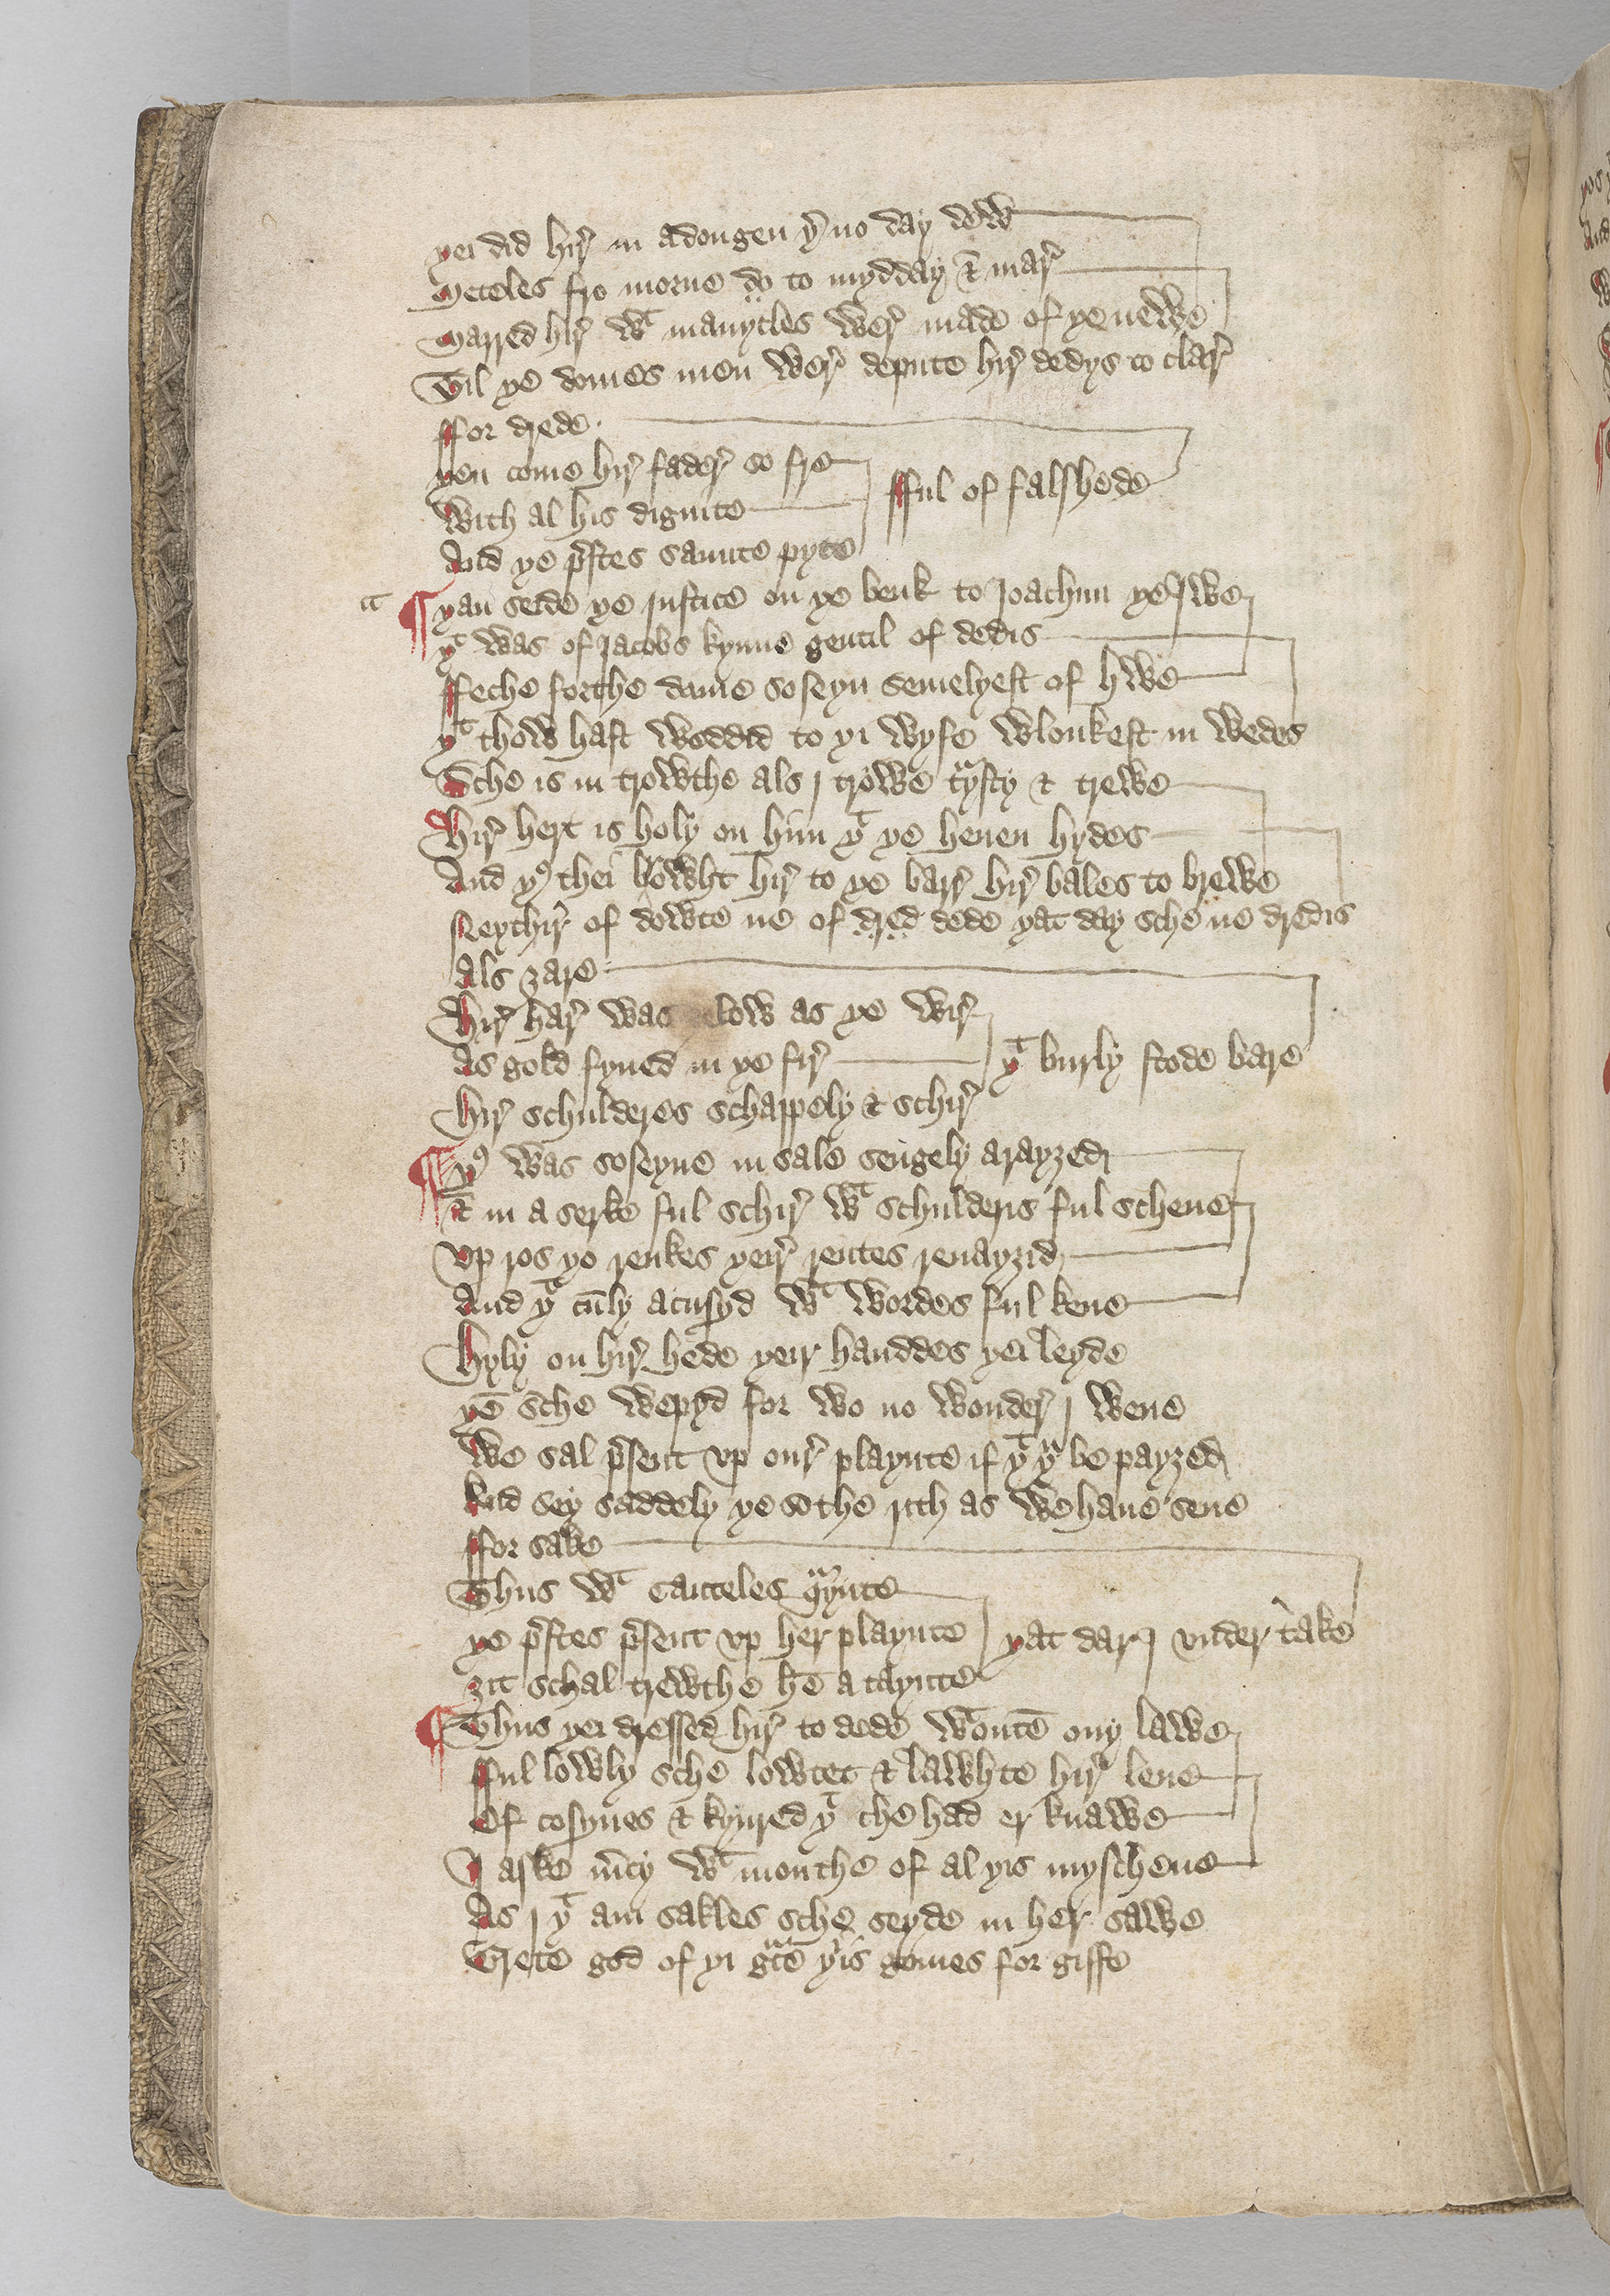 yei did hir in a dongen yr no day dew
Meteles fro morne do to mydday & mar
Marred hir wt manycles wer made of ye newe
Til ye domes men wer depute hir dedys to clar
ffor drede
yen come hir fader so fre
fful of falshede
With al his dignite
And ye prstes sannte pyte
yan seide ye justice on ye benk to Joachim ye Jwe
yt was of Jacobs kynne gentil of dedis
ffeche forthe dame soseyn semelyest of hwe
yt thow hast weddid to yi wyfe wlonkest in wedes
Sche is in trowthe als j trowe trysty & trewe
Hir hert is holy on him yt ye heuen hydes
And yus thei browht hir to ye barr hir bales to brewe
Neythir of dowte ne of dred dede yat day sche ne dredis
Als zare
Hir har was elow as ye wir
As gold fyned in ye fir
yt burly stode bare
Hir schulderes schappely & schir
yus was soseyne in sale sengely arayzed
& in a serke ful schir wt schulderis ful schene
Vp ros yo renkes yeir rentes renayzid
And yt cūly acusyd wt wordes ful kene
Hyly on hir hede yeir handdes yei leyde
yē sche wepyd for wo no wonder j wene
We sal prsent vp our playnte if yt yu be payzed
And sey saddely ye sothe rith as we haue sene
ffor sake
Thus wt cauteles quaynte
ye prstes prsent vp her playnte
yat dar j vnder take
zit schal trewthe hē a taynte
Thus yei dressed hir to dede wtoutē ony lawe
fful lowly sche lowtet & lawhte hir leue
Of cosynes & kynred yt che had er knawe
I aske mrcy wt mouthe of al yis mescheue
As j yt am sakles sche seyde in her sawe
Grete god of yi grace yis gomes for giffe